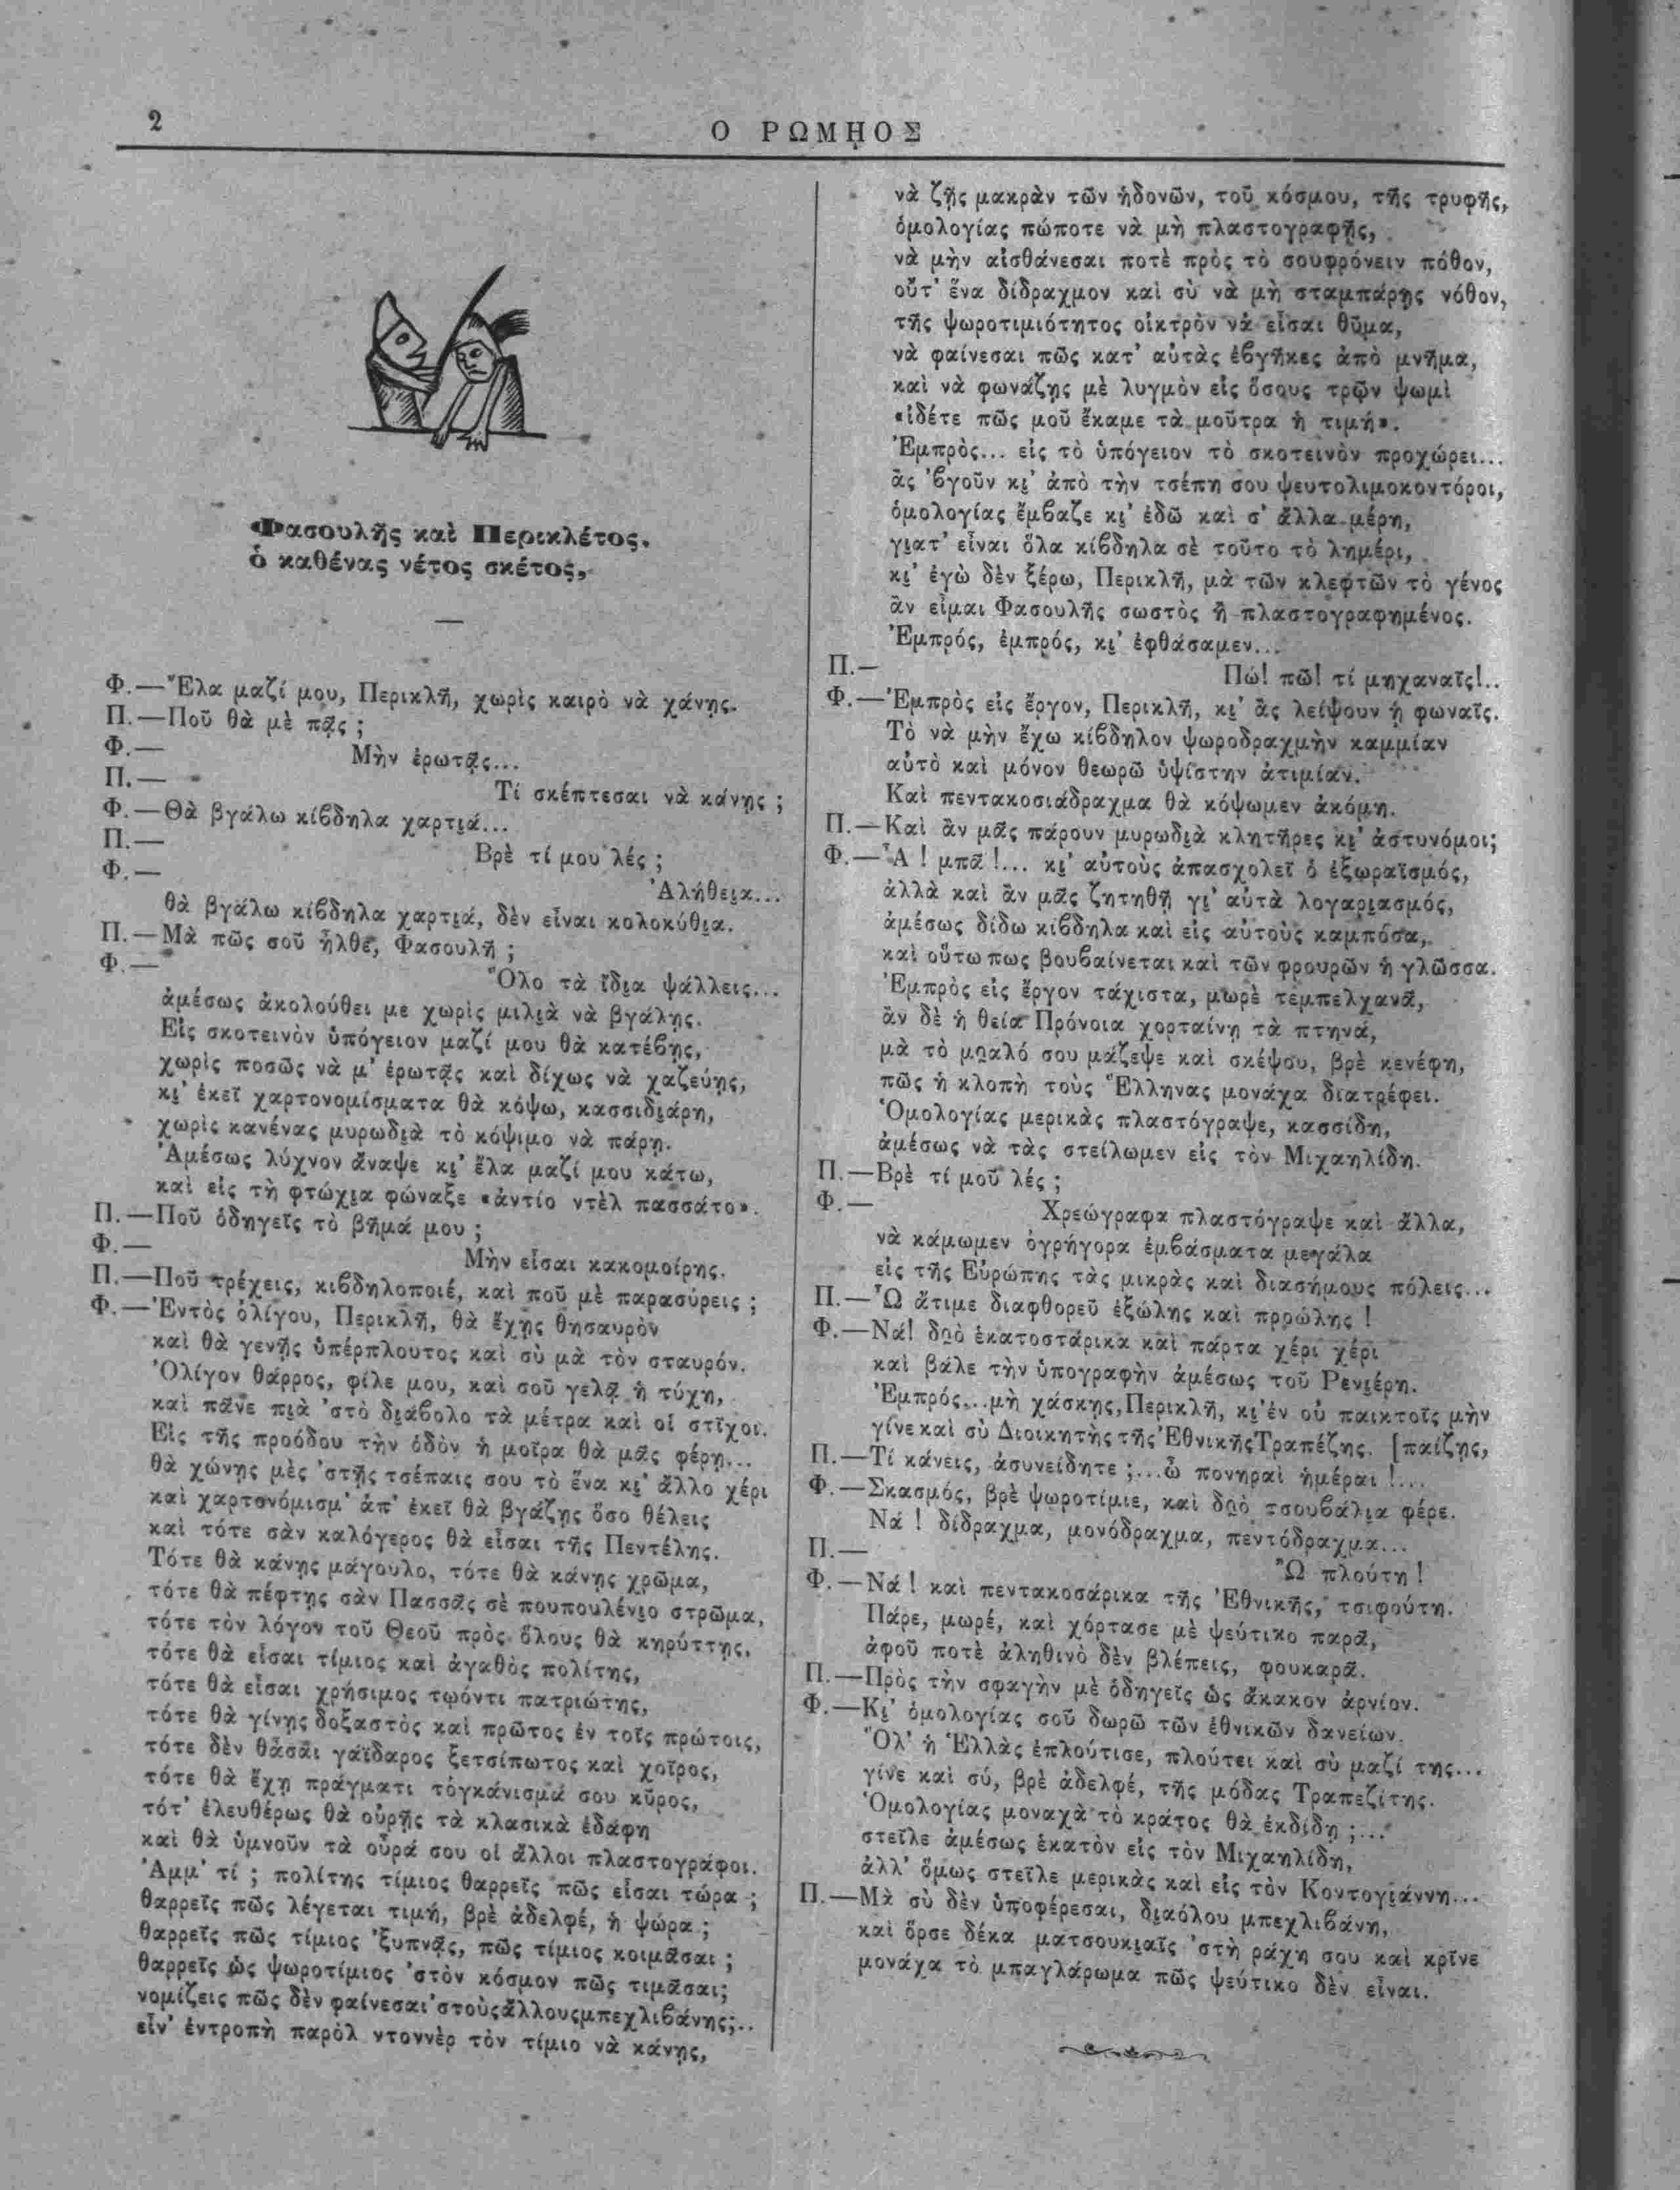 2
Ο ΡΩΜΗΟΣ
Φασουλῆς καὶ Περικλέτος,
ὁ καθένας νέτος σκέτος,
Φ.—Ἔλα μαζί μου, Περικλῆ, χωρὶς καιρὸ νὰ χάνῃς.
Π.—Ποῦ θὰ μὲ πᾷς ;
Φ.— Μὴν ἐρωτᾷς...
Π.— Τί σκέπτεσαι νὰ κάνῃς ;
Φ.—Θὰ βγάλω κίβδηλα χαρτιά...
Π.— Βρὲ τί μου λές ;
Φ.— Ἀλήθεια...
θὰ βγάλω κίβδηλα χαρτιά, δὲν εἶναι κολοκύθια.
Π.—Μὰ πῶς σοῦ ἦλθε, Φασουλῆ ;
Φ.— Ὅλο τὰ ἴδια ψάλλεις...
ἀμέσως ἀκολούθει με χωρὶς μιλιὰ νὰ βγάλῃς.
Εἰς σκοτεινὸν ὑπόγειον μαζί μου θὰ κατέβῃς,
χωρὶς ποσῶς νὰ μ' ἐρωτᾷς καὶ δίχως νὰ χαζεύῃς,
κι' ἐκεῖ χαρτονομίσματα θὰ κόψω, κασσιδιάρη,
χωρὶς κανένας μυρωδιὰ τὸ κόψιμο νὰ πάρῃ.
Ἀμέσως λύχνον ἄναψε κι' ἔλα μαζί μου κάτω,
καὶ εἰς τὴ φτώχια φώναξε «ἀντίο ντὲλ πασσάτο».
Π.—Ποῦ ὁδηγεῖς τὸ βῆμά μου ;
Φ.— Μὴν εἶσαι κακομοίρης.
Π.—Ποῦ τρέχεις, κιβδηλοποιέ, καὶ ποῦ μὲ παρασύρεις ;
Φ.—Ἐντὸς ὀλίγου, Περικλῆ, θὰ ἔχῃς θησαυρὸν
καὶ θὰ γενῇς ὑπέρπλουτος καὶ σὺ μὰ τὸν σταυρόν.
Ὀλίγον θάρρος, φίλε μου, καὶ σοῦ γελᾷ ἡ τύχη,
καὶ πᾶνε πιὰ 'στὸ διάβολο τὰ μέτρα καὶ οἱ στῖχοι.
Εἰς τῆς προόδου τὴν ὁδὸν ἡ μοῖρα θὰ μᾶς φέρῃ...
θὰ χώνῃς μὲς 'στῆς τσέπαις σου τὸ ἕνα κι' ἄλλο χέρι
καὶ χαρτονόμισμ' ἀπ' ἐκεῖ θὰ βγάζῃς ὅσο θέλεις
καὶ τότε σὰν καλόγερος θὰ εἶσαι τῆς Πεντέλης.
Τότε θὰ κάνῃς μάγουλο, τότε θὰ κάνῃς χρῶμα,
τότε θὰ πέφτῃς σὰν Πασσᾶς σὲ πουπουλένιο στρῶμα,
τότε τὸν λόγον τοῦ Θεοῦ πρὸς ὅλους θὰ κηρύττῃς,
τότε θὰ εἶσαι τίμιος καὶ ἀγαθὸς πολίτης,
τότε θὰ εἶσαι χρήσιμος τῳόντι πατριώτης,
τότε θὰ γίνῃς δοξαστὸς καὶ πρῶτος ἐν τοῖς πρώτοις,
τότε δὲν θἆσαι γάϊδαρος ξετσίπωτος καὶ χοῖρος,
τότε θὰ ἔχῃ πράγματι τὸγκάνισμά σου κῦρος,
τότ' ἐλευθέρως θὰ οὐρῇς τὰ κλασικὰ ἐδάφη
καὶ θὰ ὑμνοῦν τὰ οὖρά σου οἱ ἄλλοι πλαστογράφοι.
Ἀμμ' τί ; πολίτης τίμιος θαρρεῖς πῶς εἶσαι τώρα ;
θαρρεῖς πῶς λέγεται τιμή, βρὲ ἀδελφέ, ἡ ψώρα ;
θαρρεῖς πῶς τίμιος 'ξυπνᾷς, πῶς τίμιος κοιμᾶσαι ;
θαρρεῖς ὡς ψωροτίμιος 'στὸν κόσμον πῶς τιμᾶσαι;
νομίζεις πῶς δὲν φαίνεσαι 'στοὺς ἄλλους μπεχλιβάνης;..
εἶν' ἐντροπὴ παρὸλ ντοννὲρ τὸν τίμιο νὰ κάνῃς,
νὰ ζῇς μακρὰν τῶν ἡδονῶν, τοῦ κόσμου, τῆς τρυφῆς,
ὁμολογίας πώποτε νὰ μὴ πλαστογραφῇς,
νὰ μὴν αἰσθάνεσαι ποτὲ πρὸς τὸ σουφρόνειν πόθον,
οὔτ' ἕνα δίδραχμον καὶ σὺ νὰ μὴ σταμπάρῃς νόθον,
τῆς ψωροτιμιότητος οἰκτρὸν νὰ εἶσαι θῦμα,
νὰ φαίνεσαι πῶς κατ' αὐτὰς ἐβγῆκες ἀπὸ μνῆμα,
καὶ νὰ φωνάζῃς μὲ λυγμὸν εἰς ὅσους τρῷν ψωμὶ
«ἰδέτε πῶς μοῦ ἔκαμε τὰ μοῦτρα ἡ τιμή».
Ἐμπρὸς... εἰς τὸ ὑπόγειον τὸ σκοτεινὸν προχώρει...
ἂς 'βγοῦν κι' ἀπὸ τὴν τσέπη σου ψευτολιμοκοντόροι,
ὁμολογίας ἔμβαζε κι' ἐδῶ καὶ σ' ἄλλα μέρη,
γιατ' εἶναι ὅλα κίβδηλα σὲ τοῦτο τὸ λημέρι,
κι' ἐγὼ δὲν ξέρω, Περικλῆ, μὰ τῶν κλεφτῶν τὸ γένος
ἂν εἶμαι Φασουλῆς σωστὸς ἢ πλαστογραφημένος.
Ἐμπρός, ἐμπρός, κι' ἐφθάσαμεν...
Π.— Πώ! πῶ! τί μηχαναῖς!..
Φ.—Ἐμπρὸς εἰς ἔργον, Περικλῆ, κι' ἂς λείψουν ᾑ φωναῖς.
Τὸ νὰ μὴν ἔχω κίβδηλον ψωροδραχμὴν καμμίαν
αὐτὸ καὶ μόνον θεωρῶ ὑψίστην ἀτιμίαν.
Καὶ πεντακοσιάδραχμα θὰ κόψωμεν ἀκόμη.
Π.—Καὶ ἂν μᾶς πάρουν μυρωδιὰ κλητῆρες κι' ἀστυνόμοι;
Φ.—Ἆ ! μπᾶ !... κι' αὐτοὺς ἀπασχολεῖ ὁ ἐξωραϊσμός,
ἀλλὰ καὶ ἂν μᾶς ζητηθῇ γι' αὐτὰ λογαριασμός,
ἀμέσως δίδω κίβδηλα καὶ εἰς αὐτοὺς καμπόσα,
καὶ οὕτω πως βουβαίνεται καὶ τῶν φρουρῶν ἡ γλῶσσα.
Ἐμπρὸς εἰς ἔργον τάχιστα, μωρὲ τεμπελχανᾶ,
ἂν δὲ ἡ θεία Πρόνοια χορταίνῃ τὰ πτηνά,
μὰ τὸ μυαλό σου μάζεψε καὶ σκέψου, βρὲ κενέφη,
πῶς ἡ κλοπὴ τοὺς Ἕλληνας μονάχα διατρέφει.
Ὁμολογίας μερικὰς πλαστόγραψε, κασσίδη,
ἀμέσως νὰ τὰς στείλωμεν εἰς τὸν Μιχαηλίδη.
Π.—Βρὲ τί μοῦ λές ;
Φ.— Χρεώγραφα πλαστόγραψε καὶ ἄλλα,
νὰ κάμωμεν ὀγρήγορα ἐμβάσματα μεγάλα
εἰς τῆς Εὐρώπης τὰς μικρὰς καὶ διασήμους πόλεις...
Π.—Ὦ ἄτιμε διαφθορεῦ ἐξώλης καὶ προώλης !
Φ.—Νά! δυὸ ἑκατοστάρικα καὶ πάρτα χέρι χέρι
καὶ βάλε τὴν ὑπογραφὴν ἀμέσως τοῦ Ρενιέρη.
Ἐμπρός... μὴ χάσκῃς, Περικλῆ, κι' ἐν οὐ παικτοῖς μὴν
γίνε καὶ σὺ Διοικητὴς τῆς Ἐθνικῆς Τραπέζης. [παίζῃς,
Π.—Τί κάνεις, ἀσυνείδητε ;... ὦ πονηραὶ ἡμέραι !...
Φ.—Σκασμός, βρὲ ψωροτίμιε, καὶ δυὸ τσουβάλια φέρε.
Νά ! δίδραχμα, μονόδραχμα, πεντόδραχμα...
Π.— Ὢ πλούτη !
Φ.—Νά! καὶ πεντακοσάρικα τῆς Ἐθνικῆς, τσιφούτη.
Πάρε, μωρέ, καὶ χόρτασε μὲ ψεύτικο παρᾶ,
ἀφοῦ ποτὲ ἀληθινὸ δὲν βλέπεις, φουκαρᾶ.
Π.—Πρὸς τὴν σφαγὴν μὲ ὁδηγεῖς ὡς ἄκακον ἀρνίον.
Φ.—Κι' ὁμολογίας σοῦ δωρῶ τῶν ἐθνικῶν δανείων.
Ὅλ' ἡ Ἑλλὰς ἐπλούτισε, πλούτει καὶ σὺ μαζί της...
γίνε καὶ σύ, βρὲ ἀδελφέ, τῆς μόδας Τραπεζίτης.
Ὁμολογίας μοναχὰ τὸ κράτος θὰ ἐκδίδῃ ;...
στεῖλε ἀμέσως ἑκατὸν εἰς τὸν Μιχαηλίδη,
ἀλλ' ὅμως στεῖλε μερικὰς καὶ εἰς τὸν Κοντογιάννη...
Π.—Μὰ σὺ δὲν ὑποφέρεσαι, διαόλου μπεχλιβάνη,
καὶ ὅρσε δέκα ματσουκιαῖς 'στὴ ράχη σου καὶ κρῖνε
μονάχα τὸ μπαγλάρωμα πῶς ψεύτικο δὲν εἶναι.